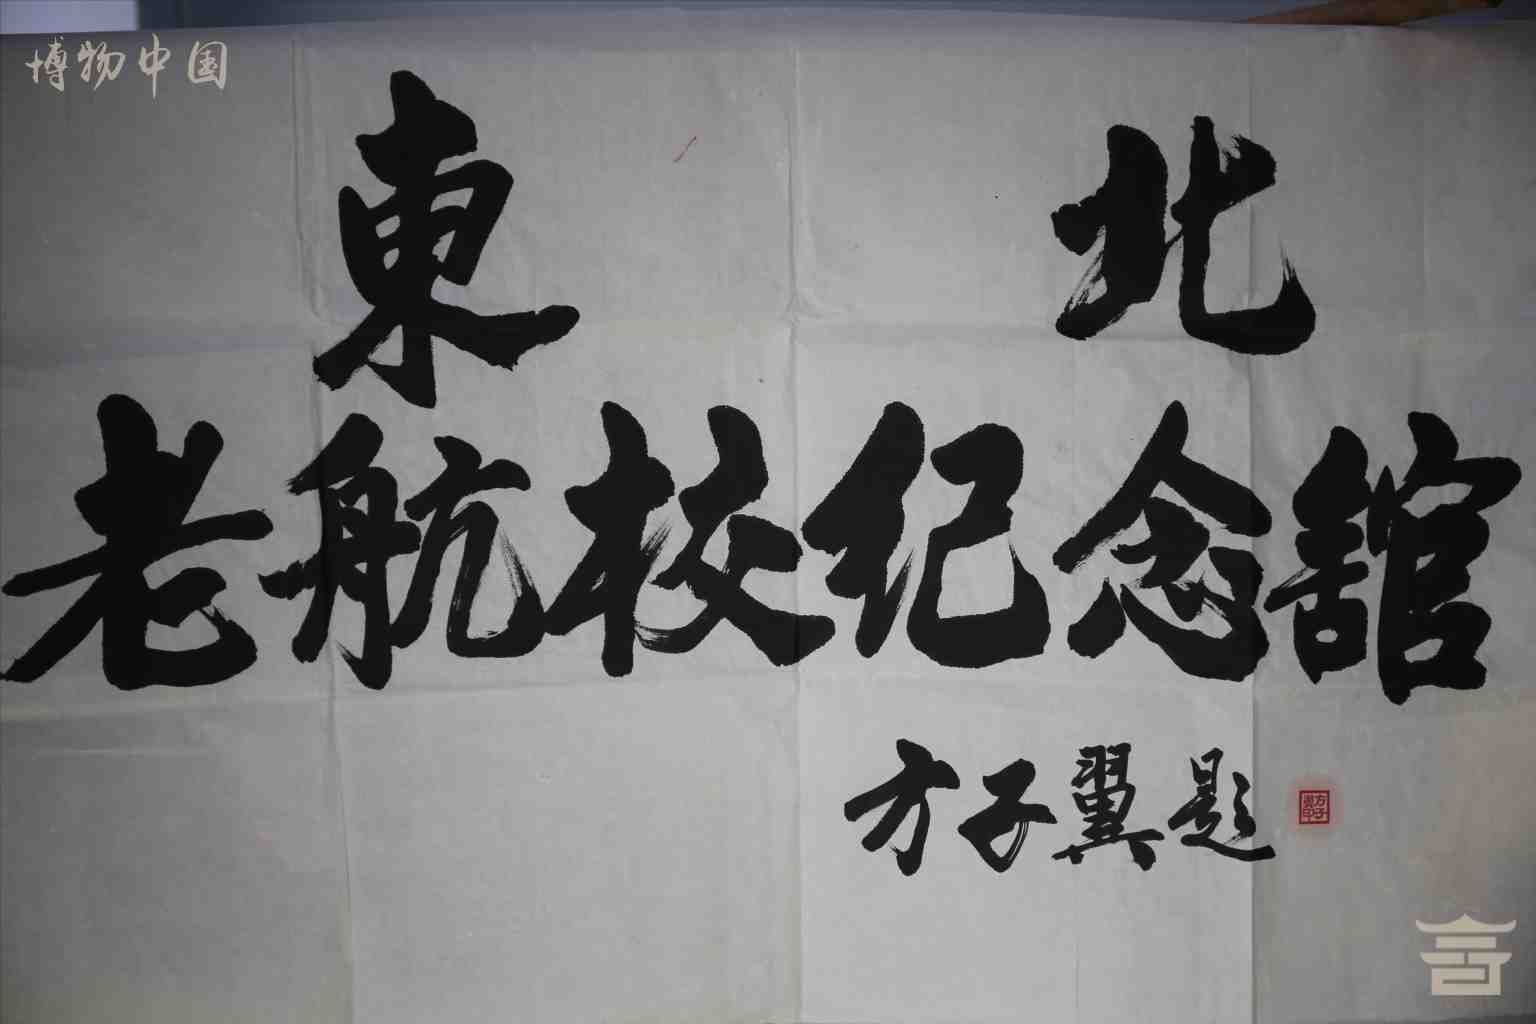 博物中国
東北
老航校纪念舘
方子翼题